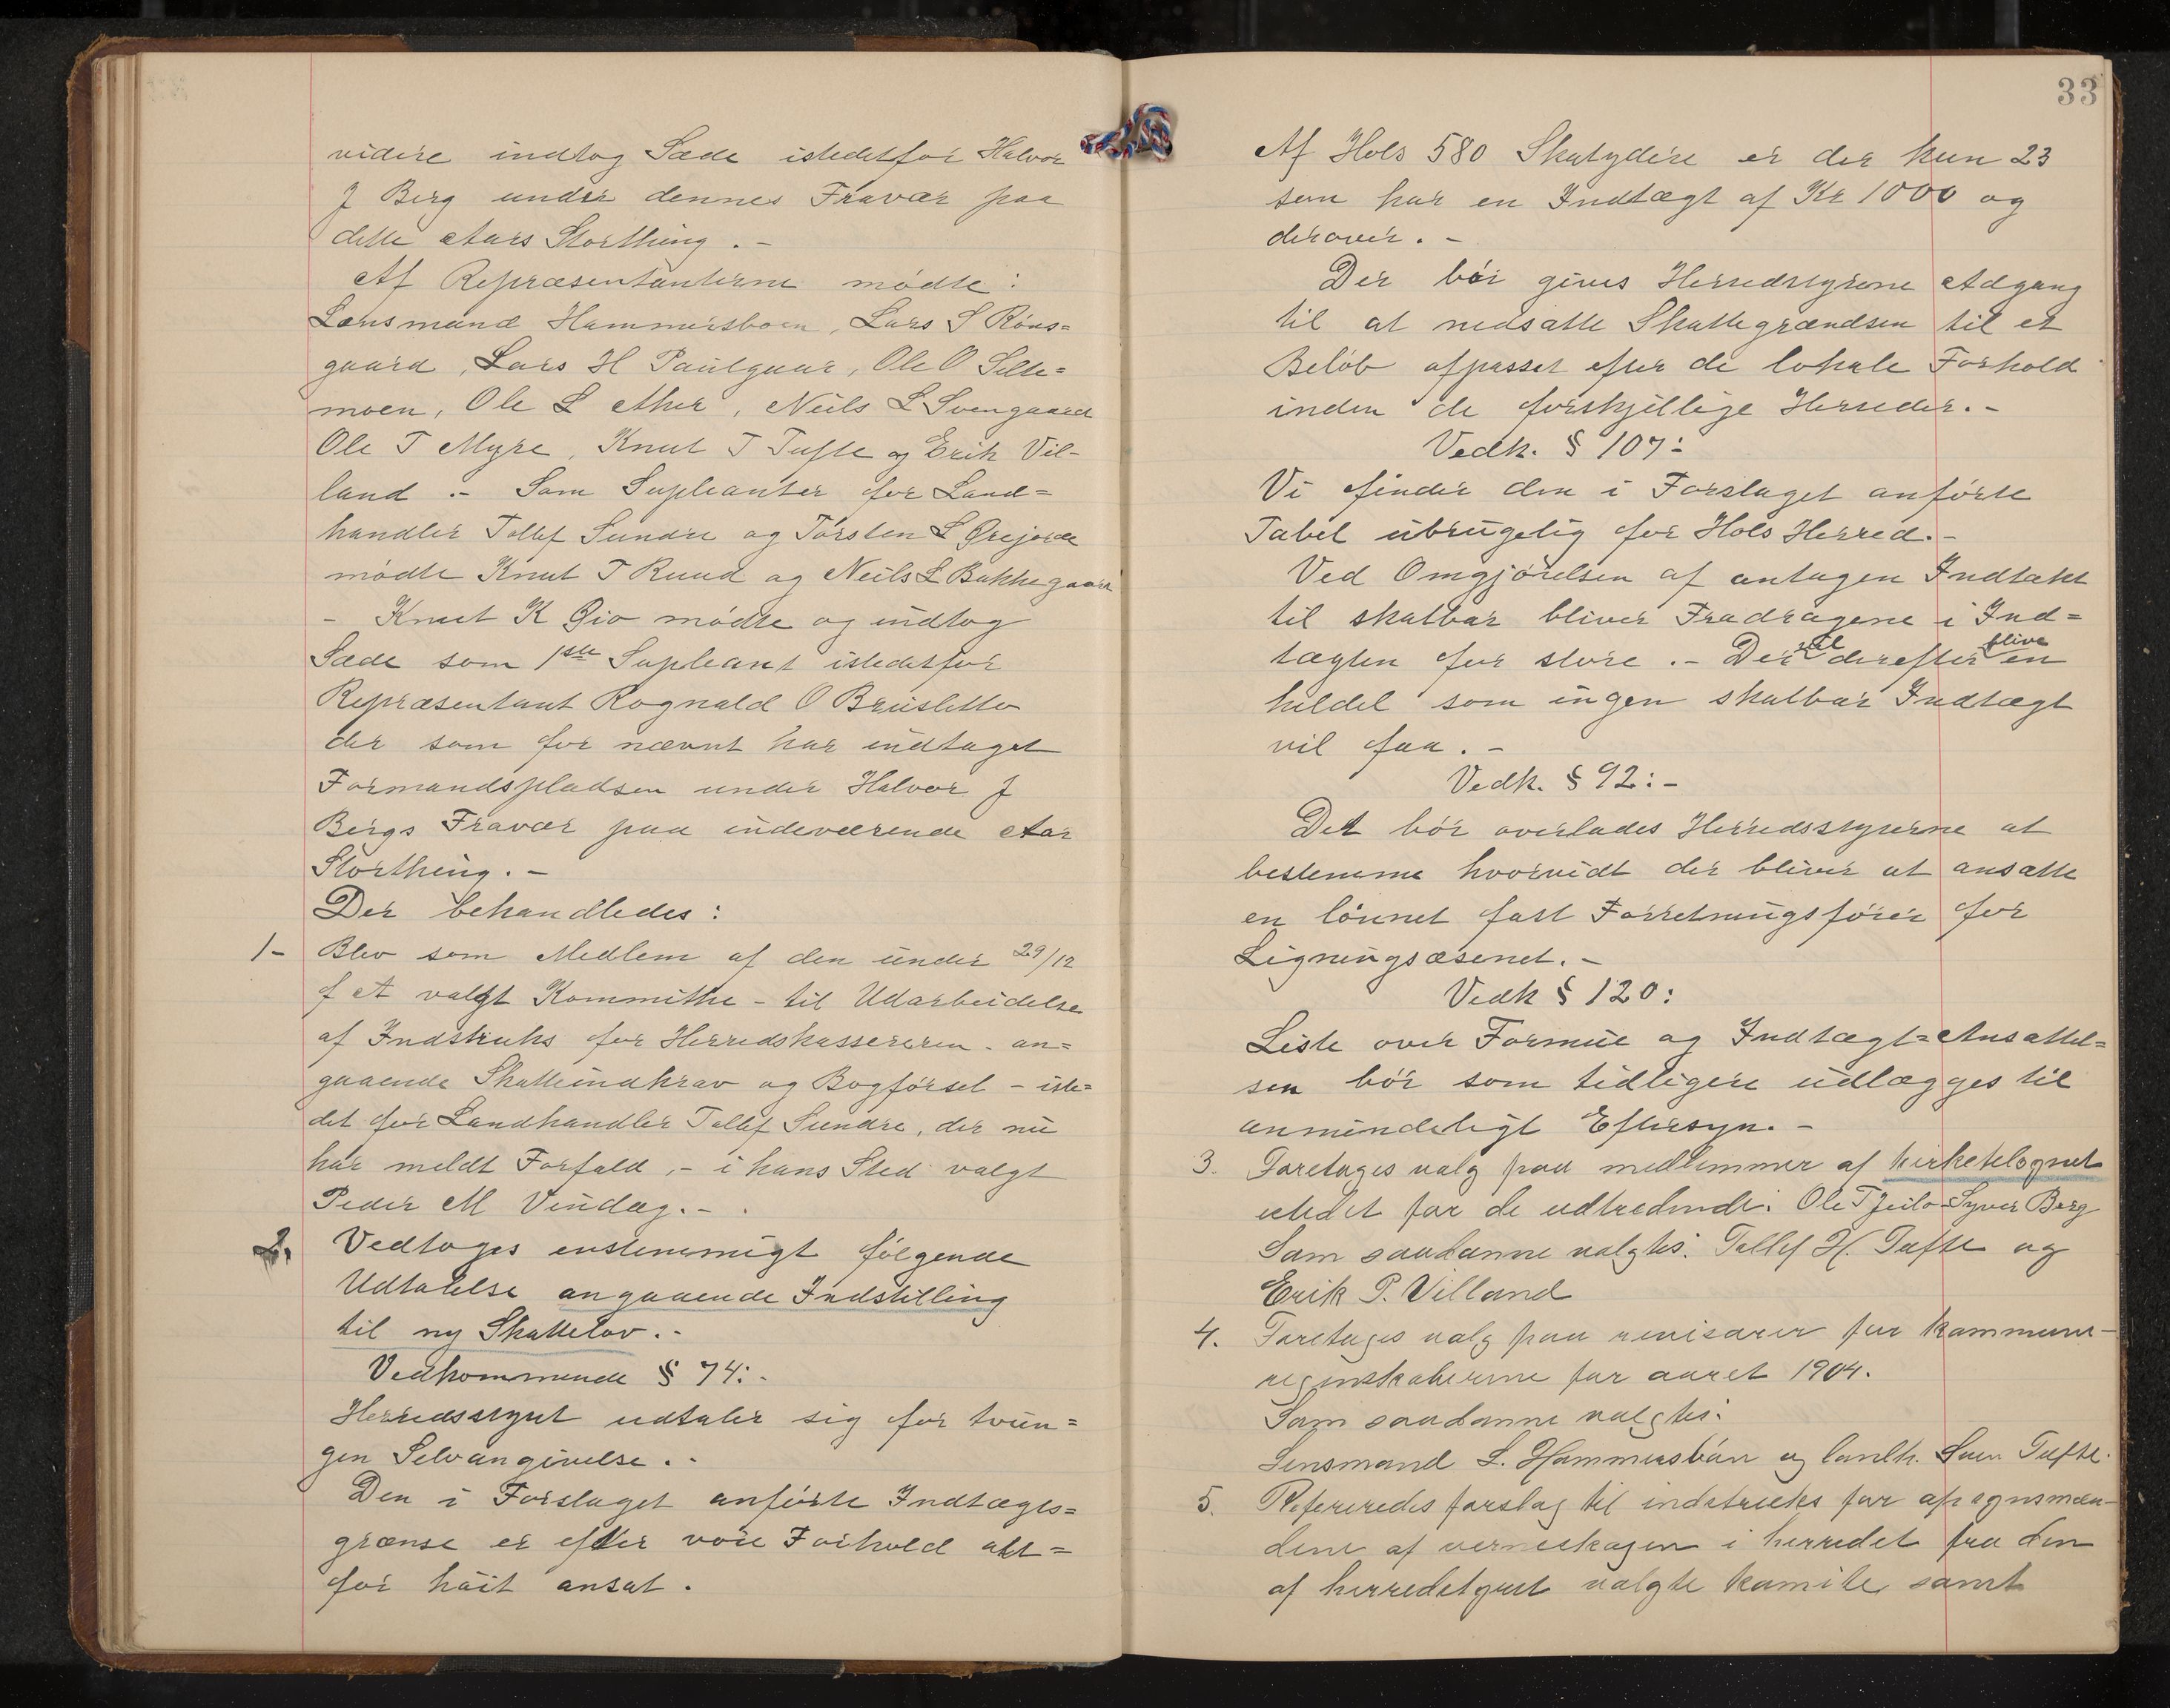 videre indtog Sæde istedetfor Halvor
J Berg under dennes Fravær paa
dette Aars Storthing. -
Af Repræsentanterne mødte:
Lensmand Hammersboen, Lars S Røns=
gaard, Lars H Paulgaar, Ole O Selte=
moen, Ole L Aker, Neils L Svengaard
Ole T Myre, Knut T Tufte og Erik Vil-
land .- Som Supleanter for Land=
handler Tollef Sundre og Torsten L
mødte Knut T Ruud og Neils L Bakkegaard
- Knut K Gio mødte og indtog
Sæde som 1ste Supleant istedetfor
Repræsentant Rognald O Brusletto
der som før nævnt har indtaget
Formandspladsen under Halvor J
Bergs Fravær paa indeværende Aar
Storthing. -
Der behandledes:
1- Blev som Medlem af den under 29/12
f A valgt Kommithe - til Udarbeidelse
af Indstruks for Herredskassereren - an=
gaaende Skatteindkrav og Bogførsel - iste=
det for Landhandler Tollef Sundre, der nu
har meldt Forfald, - i hans Sted valgt
Peder M Vindeg. -
2. Vedtoges enstemmigt følgende
Udtalelse angaaende Indstilling
til ny Skattelov. -
Vedkommende § 74: -
Herredsstyret udtaler sig for tvun=
gen Selvangivelse. -
Den i Forslaget anførte Indtægts=
grænse er efter vore Forhold alt=
for høit ansat.
33
Af Hols 580 Skatydere er der kun 23
som har en Indtægt af Kr 1000 og
derover. -
Der bør gives Herredstyrene Adgang
til at nedsatte Skattegrændsen til et
Beløb afpasset efter de lokale Forhold
inden de forskjellige Herreder. -
Vedk. § 107:
Vi finder den i Forslaget anførte
Tabel ubrugelig for Hols Herred. -
Ved Omgjørelsen af antagen Indtækt
til skatbar bliver Fradragene i Ind=
tægten for store. - Der vil derefter blive en
heldel som ingen skatbar Indtægt
vil faa. -
Vedk. § 92: -
Det bør overlades Herredsstyrerne at
bestemme hvorvidt der bliver at ansætte
en lønnet fast Forretningsfører for
Ligningsæsenet. -
Vedk § 120:
Liste over Formue og Indtægt=Ansattel=
sen bør som tidligere udlægges til
anmindeligt Eftersyn. -
3. Foretoges valg paa medlemmer af kirketilsynet
istedet for de udtredende: Ole T Jeilo - Syver Berg
Som saadanne valgtes: Tollef H. Tufte og
Erik P. Villand
4. Foretoges valg paa revisorer for kommune-
regnskaberne for aaret 1904.
Som saadanne valgtes:
Lensmand L. Hammersbøen og landh. Sven Tufte.
5. Refereredes forslag til indstruks for opsynsmæn-
dene af verneskogen i herredet fra den
af herredstyret valgte komite, samt